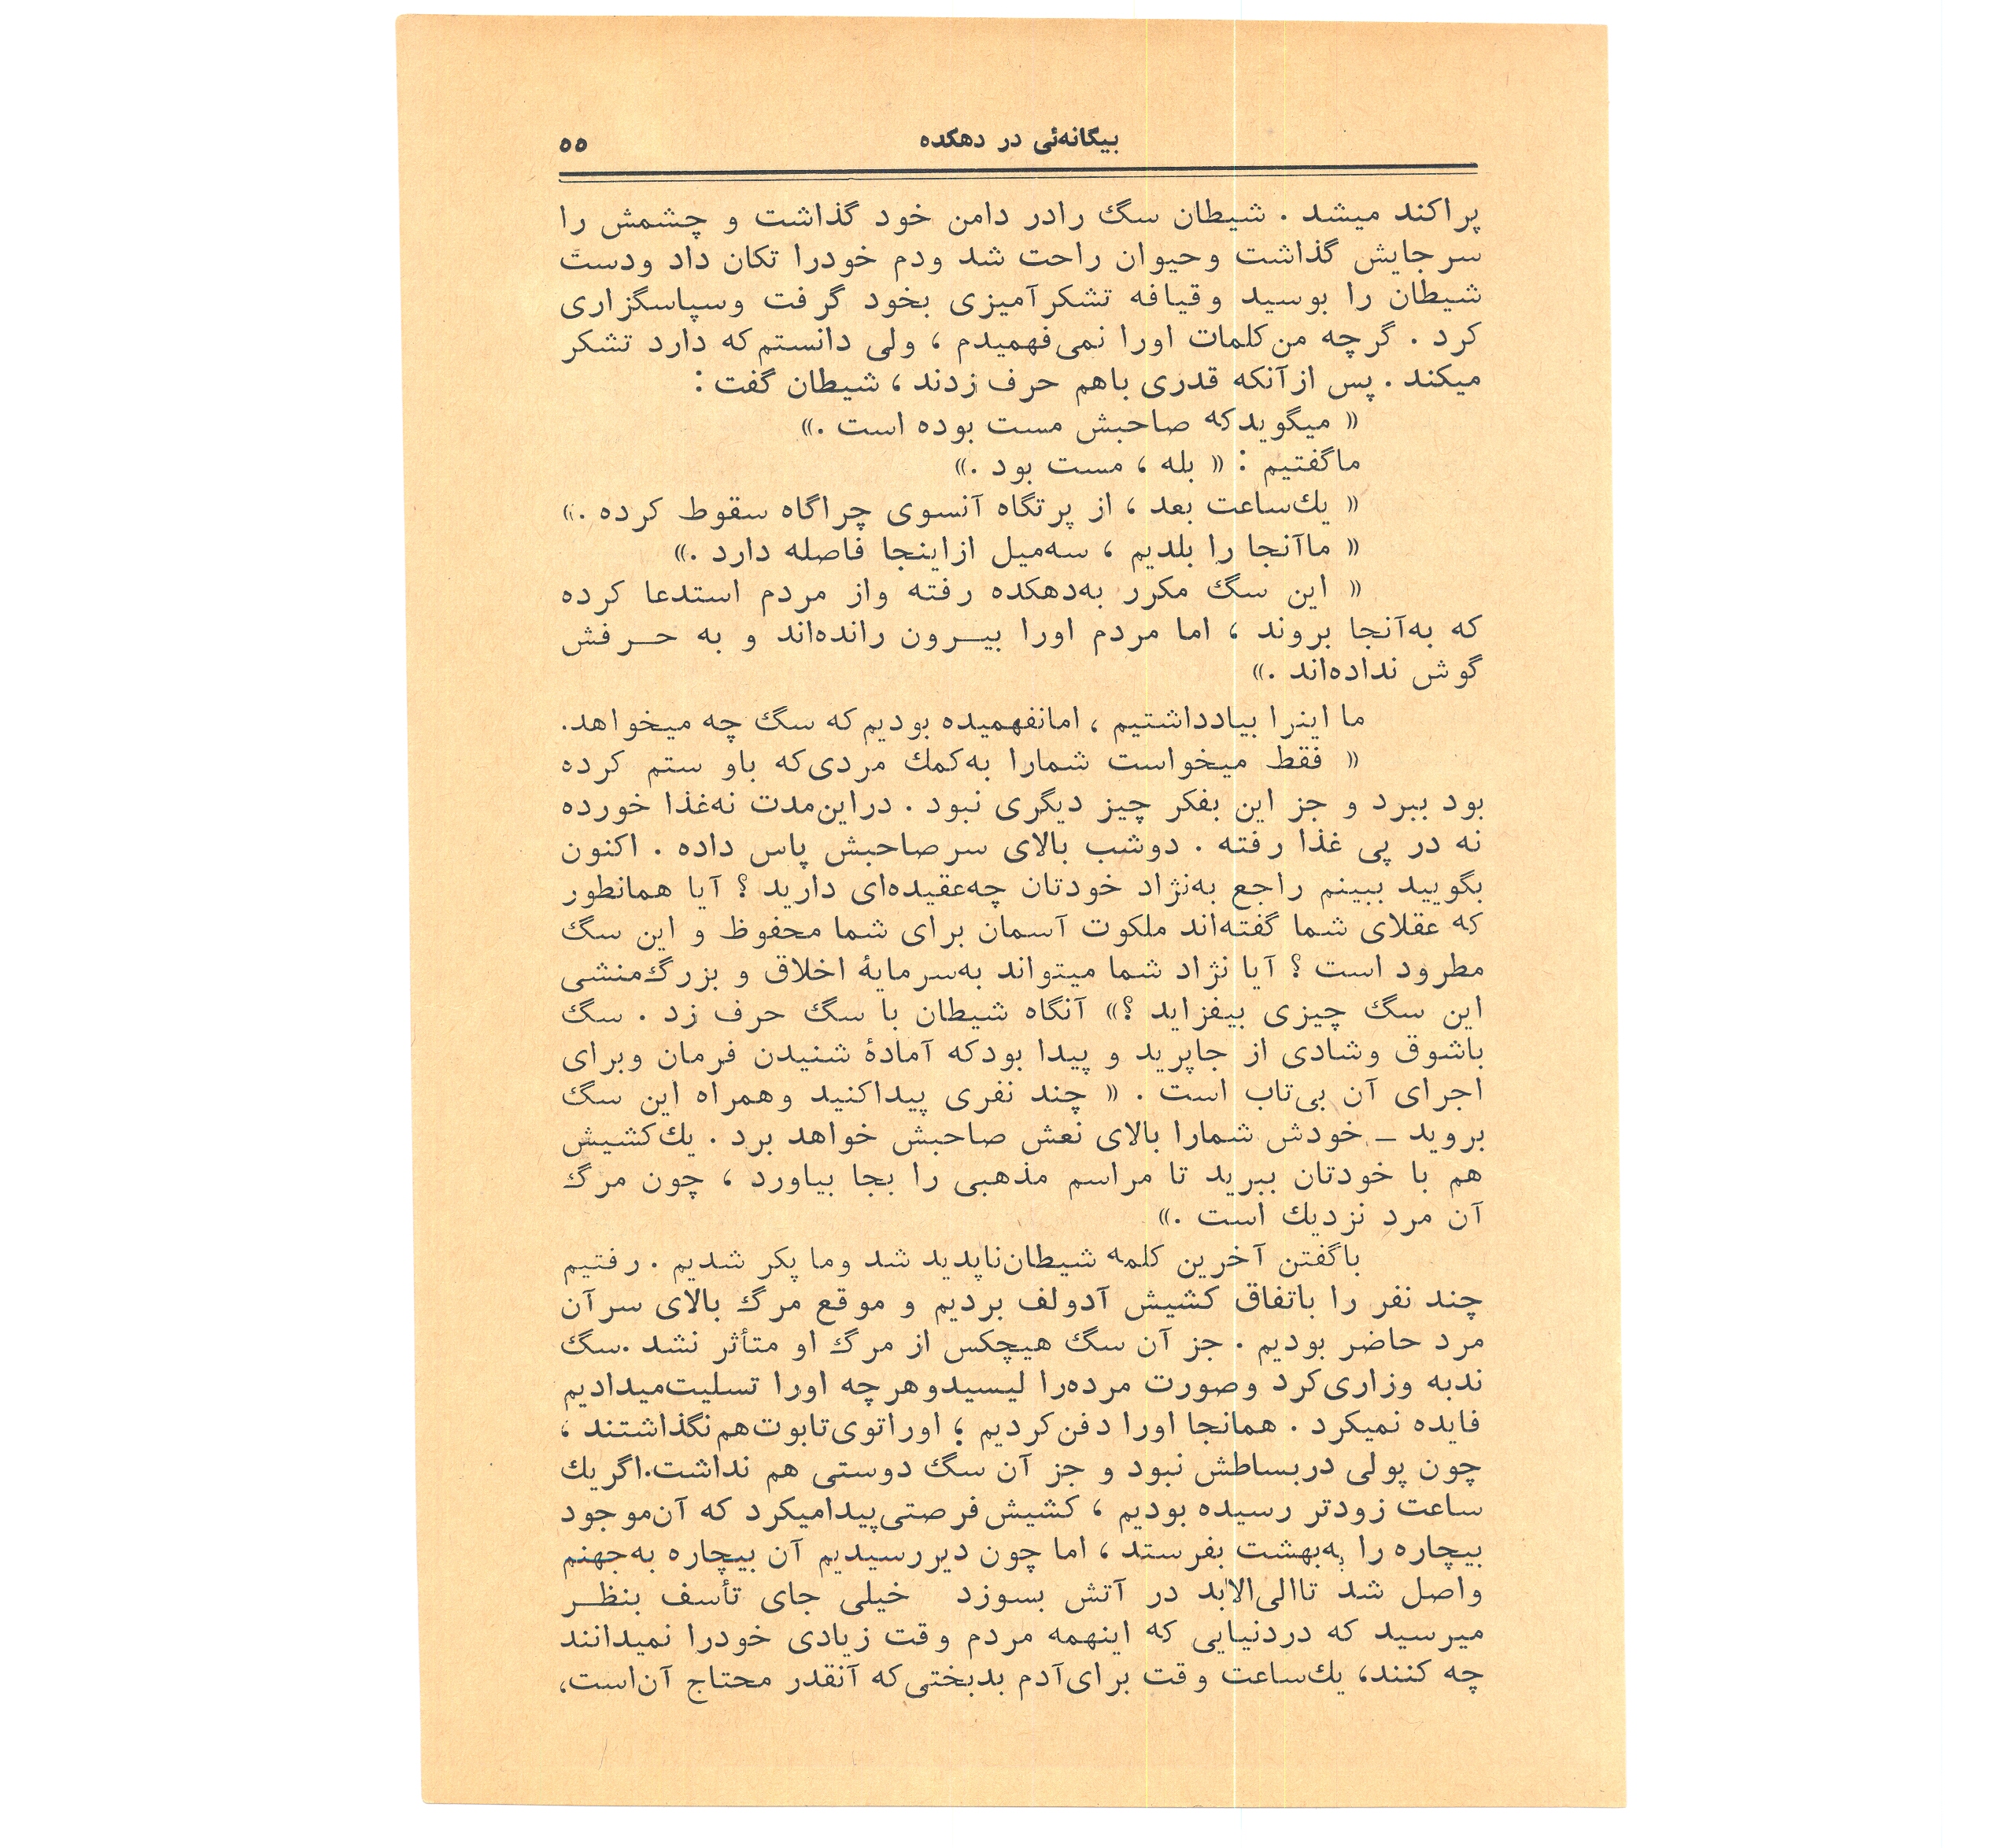 بیگانه‌ئی در دهکده ۵۵
پراکند میشد . شیطان سگ رادر دامن خود گذاشت و چشمش را
سرجایش گذاشت وحیوان راحت شد ودم خودرا تکان داد ودست
شیطان را بوسید وقیافه تشکرآمیزی بخود گرفت وسپاسگزاری
کرد . گرچه من‌کلمات اورا نمی‌فهمیدم ، ولی دانستم‌که دارد تشکر
میکند . پس ازآنکه قدری باهم حرف زدند ، شیطان گفت :
« میگویدکه صاحبش مست بوده است .»
ماگفتیم : « بله ، مست بود .»
« یك‌ساعت بعد ، از پرتگاه آنسوی چراگاه سقوط کرده .»
« ماآنجا را بلدیم ، سه‌میل ازاینجا فاصله دارد .»
« این سگ مکرر به‌دهکده رفته واز مردم استدعا کرده
که به‌آنجا بروند ، اما مردم اورا بیــرون رانده‌اند و به حــرفش
گوش نداده‌اند .»
ما اینرا بیادداشتیم ، امانفهمیده بودیم‌که سگ چه میخواهد.
« فقط میخواست شمارا به‌کمك مردی‌که باو ستم کرده
بود ببرد و جز این بفکر چیز دیگری نبود . دراین‌مدت نه‌غذا خورده
نه در پی غذا رفته . دوشب بالای سرصاحبش پاس داده . اکنون
بگویید ببینم راجع به‌نژاد خودتان چه‌عقیده‌ای دارید ؟ آیا همانطور
که عقلای شما گفته‌اند ملکوت آسمان برای شما محفوظ و این سگ
مطرود است ؟ آیا نژاد شما میتواند به‌سرمایهٔ اخلاق و بزرگ‌منشی
این سگ چیزی بیفزاید ؟» آنگاه شیطان با سگ حرف زد . سگ
باشوق وشادی از جاپرید و پیدا بودکه آمادهٔ شنیدن فرمان وبرای
اجرای آن بی‌تاب است . « چند نفری پیداکنید وهمراه این سگ
بروید ـ خودش شمارا بالای نعش صاحبش خواهد برد . یك‌کشیش
هم با خودتان ببرید تا مراسم مذهبی را بجا بیاورد ، چون مرگ
آن مرد نزدیك است .»
باگفتن آخرین کلمه شیطان‌ناپدید شد وما پکر شدیم . رفتیم
چند نفر را باتفاق کشیش آدولف بردیم و موقع مرگ بالای سرآن
مرد حاضر بودیم . جز آن سگ هیچکس از مرگ او متأثر نشد .سگ
ندبه وزاری‌کرد وصورت مرده‌را لیسیدوهرچه اورا تسلیت‌میدادیم
فایده نمیکرد . همانجا اورا دفن‌کردیم ؛ اوراتوی‌تابوت‌هم‌نگذاشتند ،
چون پولی دربساطش نبود و جز آن سگ دوستی هم نداشت.اگریك
ساعت زودتر رسیده بودیم ، کشیش‌فرصتی‌پیدامیکرد که آن‌موجود
بیچاره را به‌بهشت بفرستد ، اما چون دیررسیدیم آن بیچاره به‌جهنم
واصل شد تاالی‌الابد در آتش بسوزد خیلی جای تأسف بنظــر
میرسید که دردنیایی که اینهمه مردم وقت زیادی خودرا نمیدانند
چه کنند، یك‌ساعت وقت برای‌آدم بدبختی‌که آنقدر محتاج آن‌است،